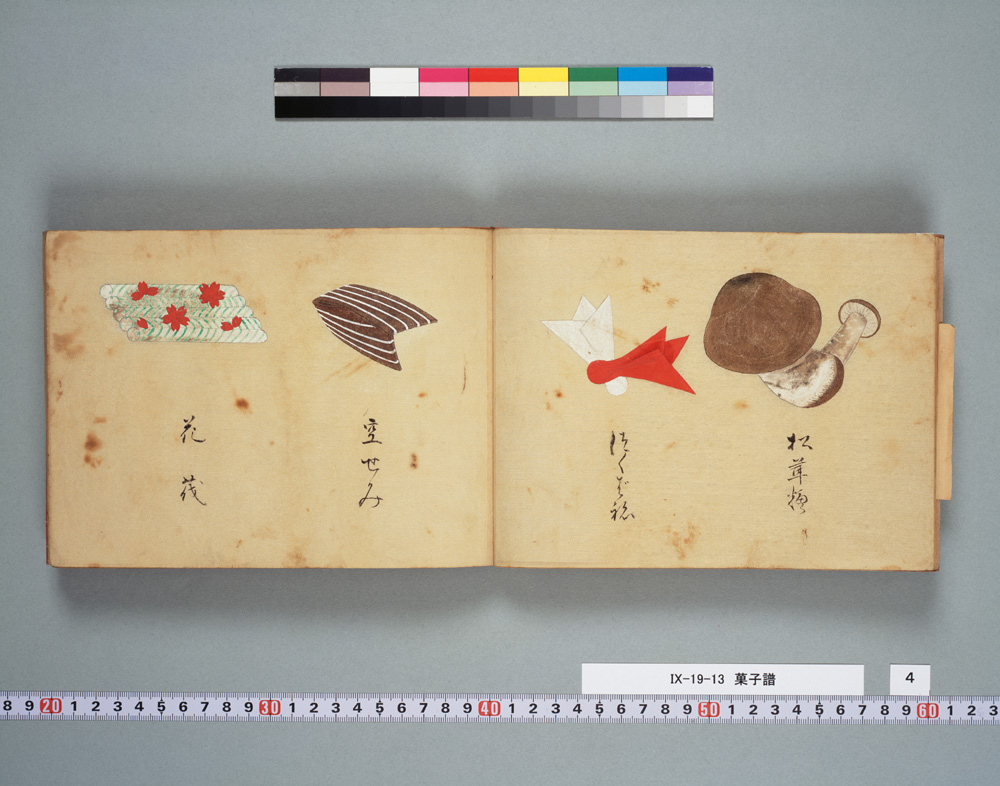 松茸
つくば祢
空せみ
花 筏
IX-19-13 菓子譜
4
8 9 20 1 2 3 4 5 6 7 8 9 30 1 2 3 4 5 6 7 8 9 40 1 2 3 4 5 6 7 8 9 50 1 2 3 4 5 6 7 8 9 60 1 2 3